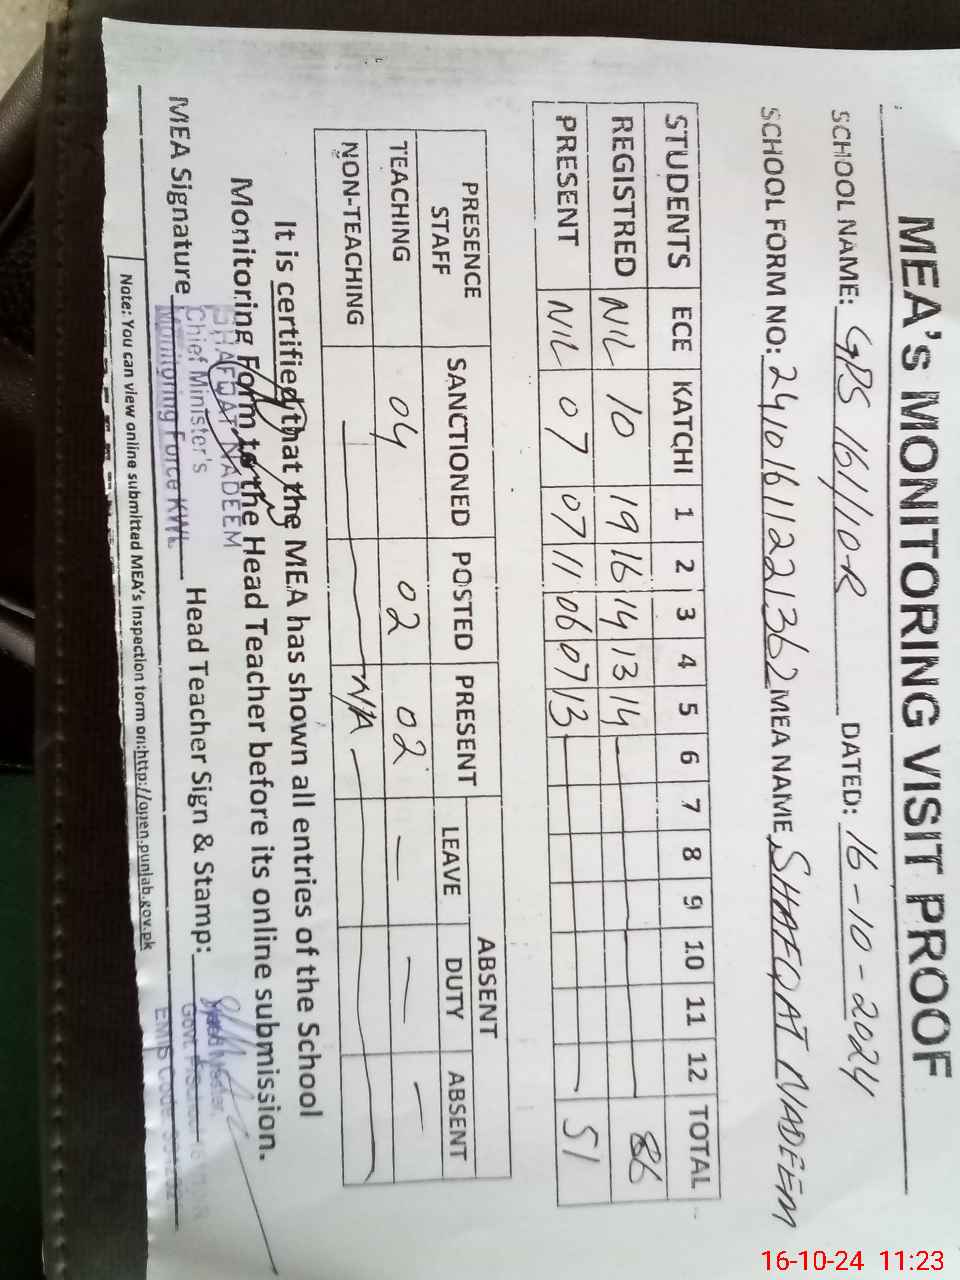 MEA's MONITORING VISIT PROOF
SCHOOL NAME: GPS 161/10-R DATED: 16-10-2024
SCHOOL FORM NO: 24101611221362 MEA NAME SHAFQAT NADEEM
STUDENTS ECE KATCHI 1 2 3 4 5 6 7 8 9 10 11 12 TOTAL
REGISTRED NIL 10 19 16 14 13 14 86
PRESENT NIL 07 07 11 06 07 13 51
PRESENCE STAFF SANCTIONED POSTED PRESENT ABSENT
LEAVE DUTY ABSENT
TEACHING 04 02 02 — — —
NON-TEACHING N/A
It is certified that the MEA has shown all entries of the School
Monitoring Form to the Head Teacher before its online submission.
MEA Signature Head Teacher Sign & Stamp:
SHAFQAT NADEEM
Chief Minister's
Monitoring Force KWL
EMIS Code
Note: You can view online submitted MEA's Inspection form on:http://open.punjab.gov.pk
16-10-24 11:23